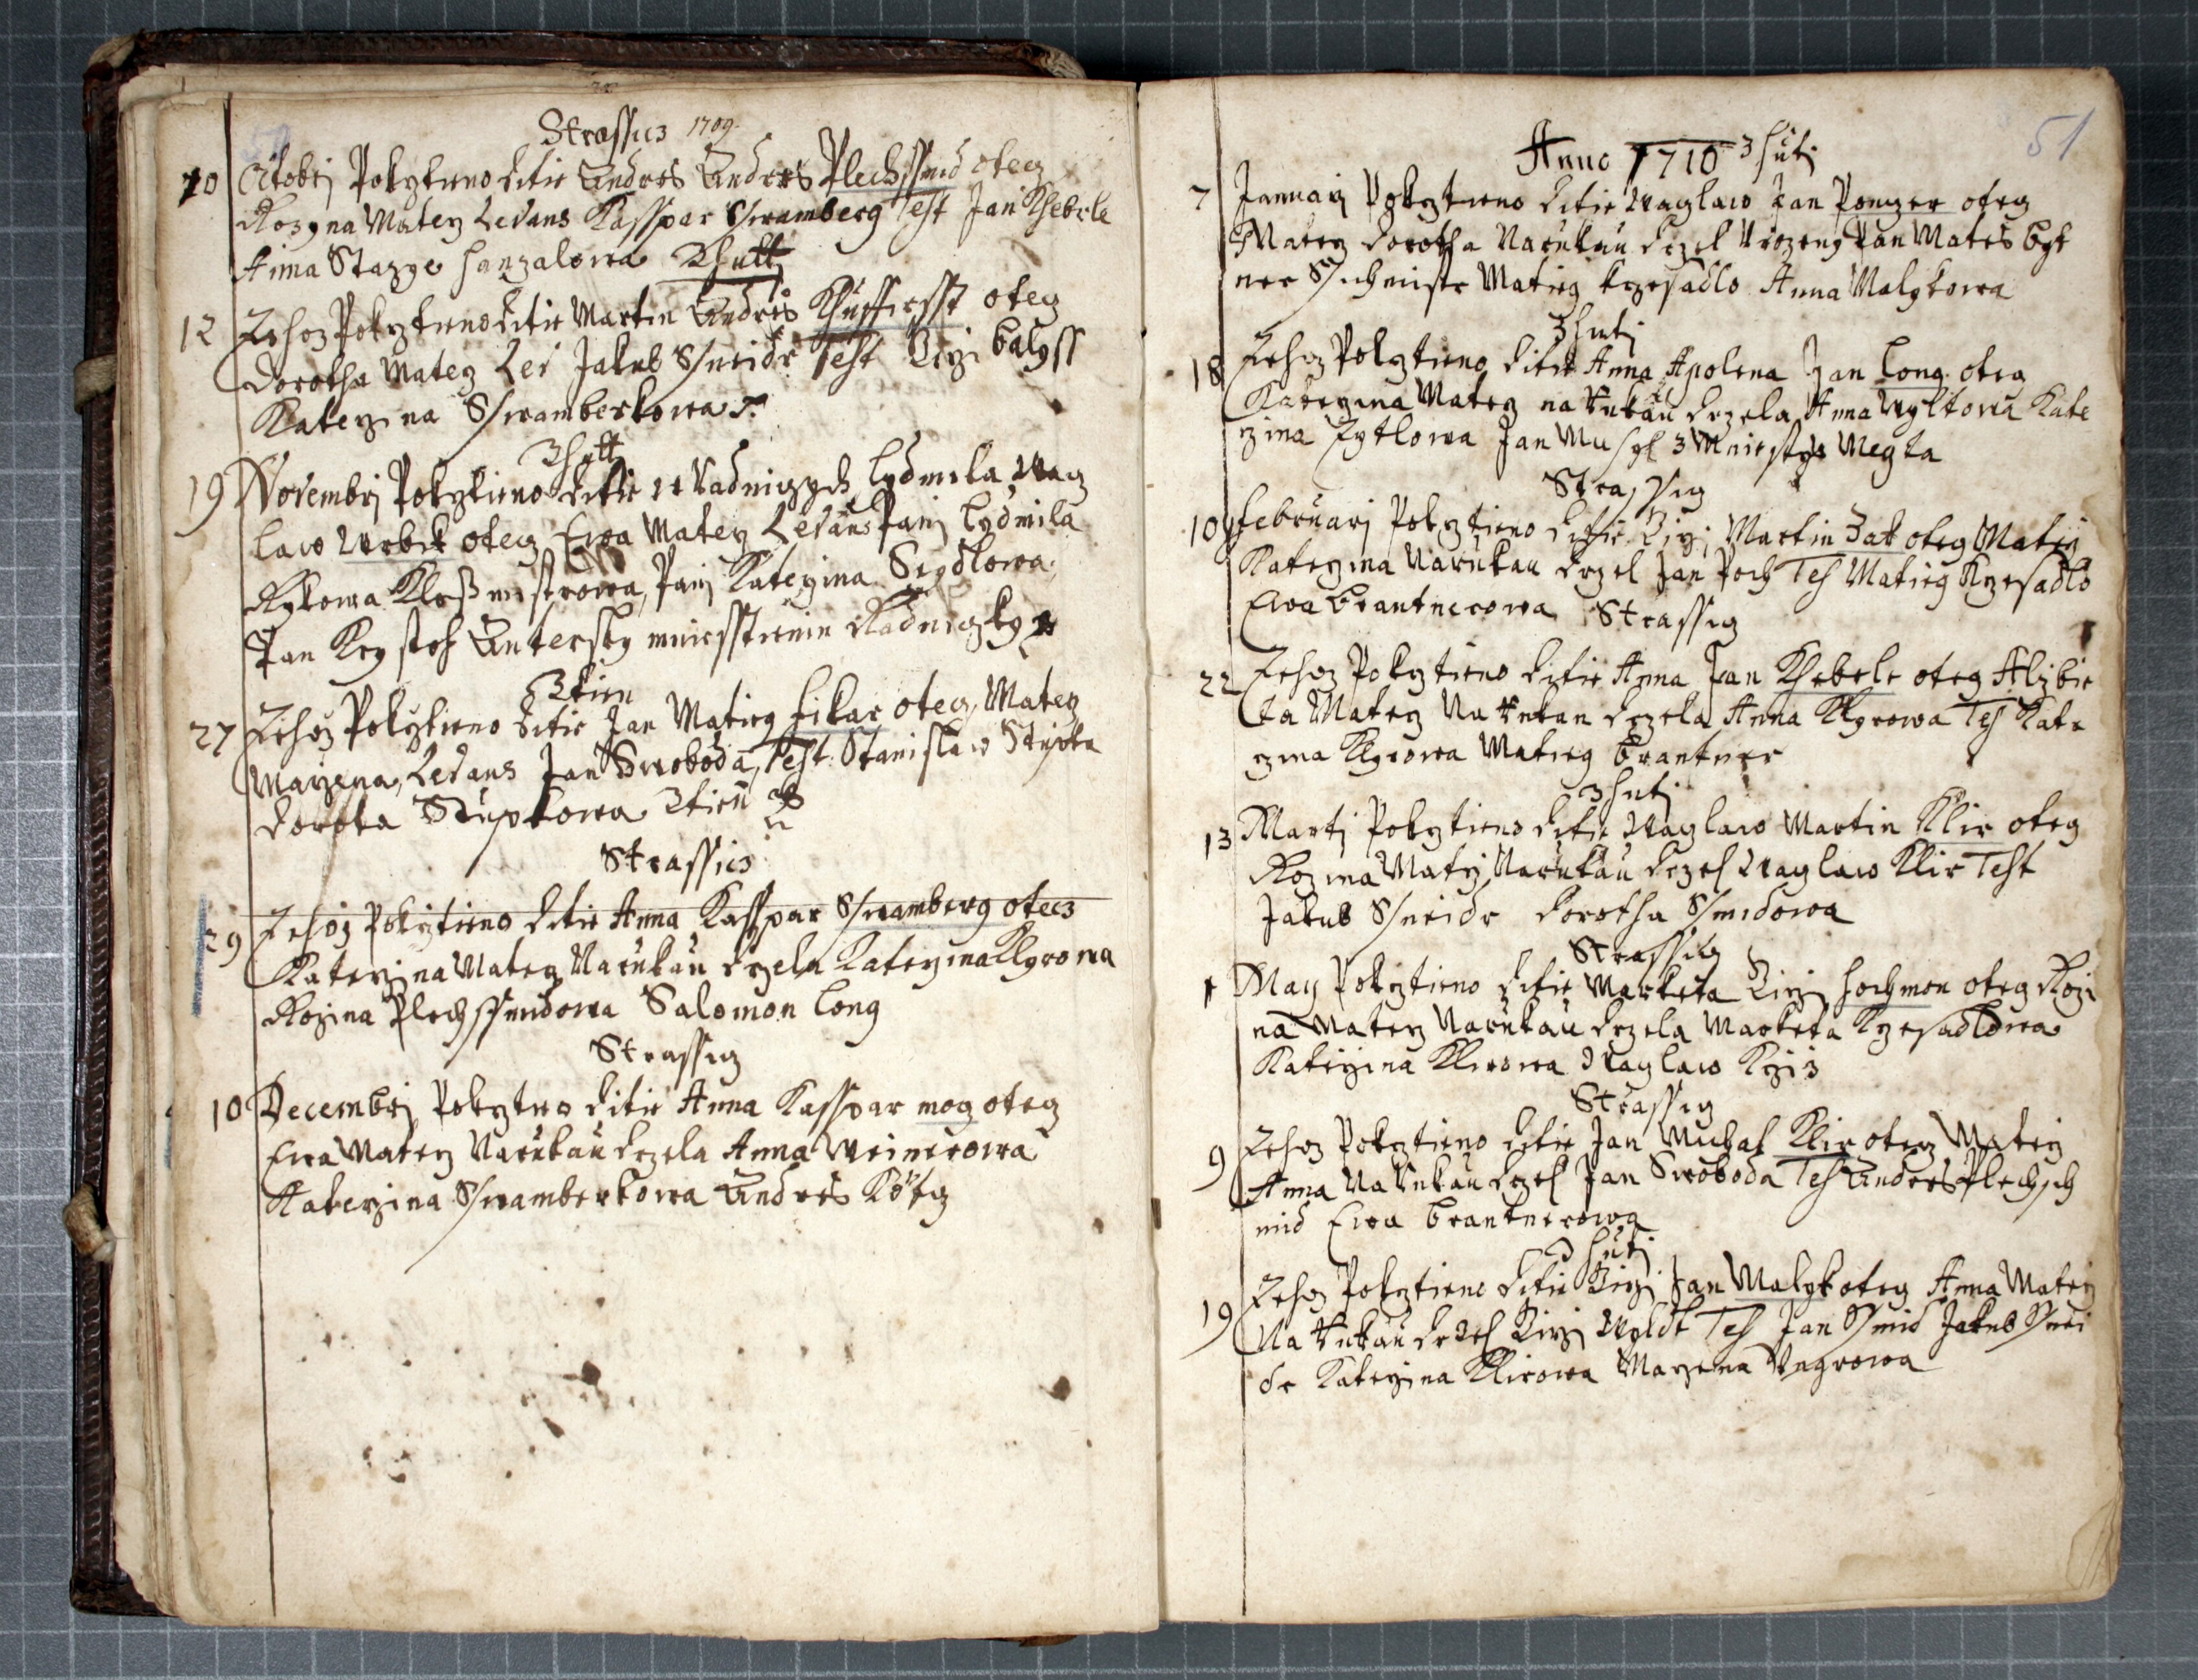 Strassicz 1709
10 Octobrj Pokrztieno Ditie Andres Andres Plechssmid otecz
Rozyna Matey Levans Kasspar Sswamberg Test Jan Kheberle
Anna Starzye Hanzalowa Zhutt
12 Zehoz Pokrztieno Ditie Martin Andres otecz
Dorotha Matey Lev Jakub Ssneidr Test Girzi Balyss
Katerzina Sswamberkowa
Zhutt
19 Novembrj Pokrztieno Ditie Lydmila Wacz
law Wrbik otecz Ewa Matey Levans Panj Lydmila
Panj Katerzina Seydlowa
Pan Krystof miesstenin
Ztien
27 Zehoz Pokrztieno Ditie Jan Matieg Fikar otecz, Matey
Marzena, Levans Jan Swoboda, Test Stanislaw Stupka
Dorota Stupkowa Ztien
Strassicz
29 Zehoz Pokrztieno Ditie Anna Kasspar Sswamberg otecz
Katerzina Matey Narukau drzela Katerzina Klyrowa
Rozina Plechssmidowa Salomon Long
Strassicz
10 Decembrj Pokrztno Ditie Anna Kasspar mog otecz
Ewa Matey Narukau drzela Anna Weinerowa
Katerzina Sswamberkowa Andres
51
Anno 1710 z huti
7 Januarij Pokrztieno Ditie Waczlaw Jan Ponczer otecz
Matey Dorotha Narukau drzel Urozeny Pan Mates Byt
ner Matieg Krzesadlo Anna Malykowa
z huti
18 Zehoz Pokrztieno Ditie Anna Apolena Jan Long otecz
Katerzina Matey na Rukau drzela Anna Wyltowa Kate
rzina Zytlowa Jan Musyl z Miesstys Megta
Strassicz
10 Februarj Pokrztieno Ditie Girzi Martin Zak otecz Matey
Katerzina Narukau drzel Jan Poch Tes Matieg Krzesadlo
Ewa Brantnerowa Strassicz
22 Zehoz Pokrztieno Ditie Anna Jan Kheberle otecz Alzbie
ta Matey Na Rukau drzela Anna Klyrowa Tes Kate
rzina Klyrowa Matieg Brantner
z huti
13 Martj Pokrztieno Ditie Waczlaw Martin Klir otecz
Rozina Matey Narukau drzel Waczlaw Klir Test
Jakub Ssneidr Dorotha Ssmidowa
Strassicz
1 May Pokrztieno Ditie Marketa Girzi Hochmon otecz Rozi
na Matey Narukau drzela Marketa Krzesadlowa
Katerzina Klirowa Waczlaw Krziz
Strassicz
9 Zehoz Pokrztieno Ditie Jan Michal Klir otecz Matey
Anna Na Rukau drzel Jan Swoboda Tes Andres Plechsch
mid Ewa Brantnerowa
z huti
19 Zehoz Pokrztieno Ditie Girzi Jan Malyk otecz Anna Matey
Na Rukau drzel Girzi Wyldt Tes Jan Ssmid Jakub Ssnei
dr Katerzina Klirowa Marzena Ungrowa